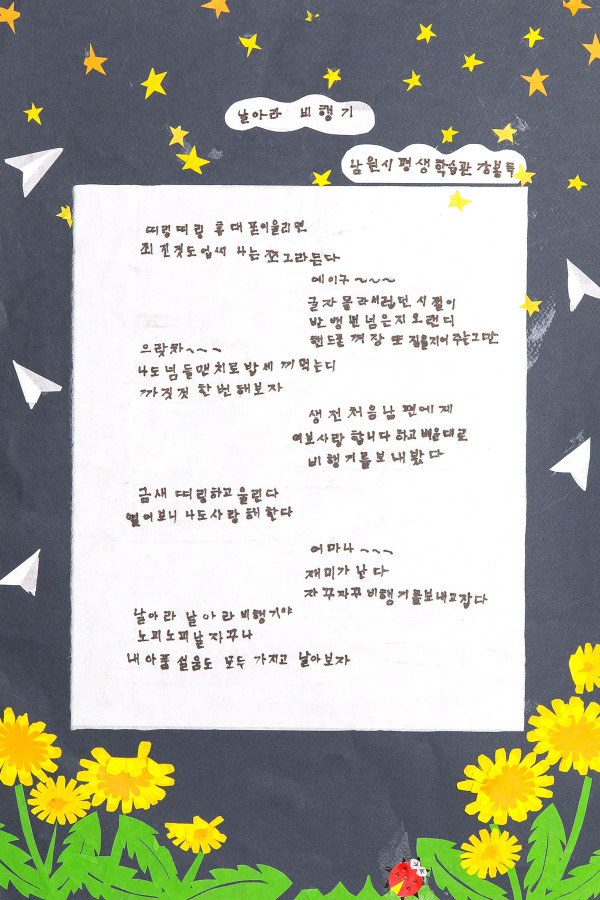 날아라 비행기
남원시평생학습관 강봉특
띠링띠링 휴대폰이울리면
죄 진것도업써 나는쪼그라든다
에이구~~~
글자 몰라서럽던 시절이
반 뱅년넘은지오랜디
핸드폰 껴장 또 집을지어주는그만
으랏차~~~
나도넘들맨치로밥세끼먹는디
까짓것 한번해보자
생전처음남편에게
여보사랑합니다하고배운대로
비행기를보내봤다
금새 띠링하고울린다
열어보니나도사랑해한다
어마나~~~
재미가난다
자꾸자꾸비행기를보내고잡다
날아라날아라비행기야
노피노피날자꾸나
내아품설음도모두가지고날아보자